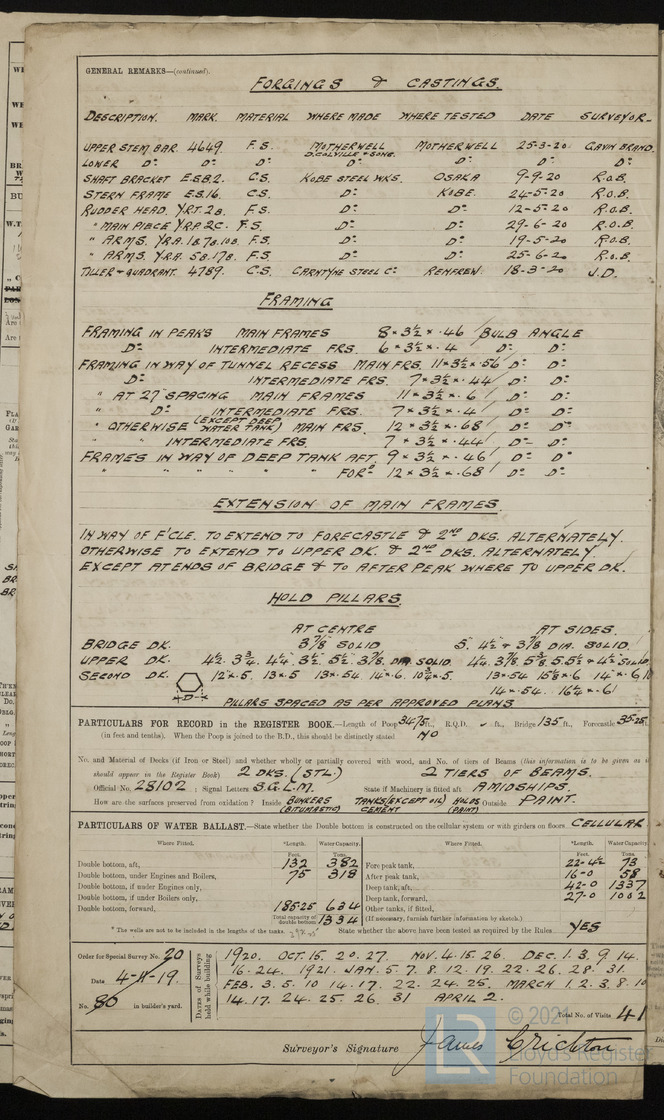 GENERAL REMARKS—(continued).
FORGINGS & CASTINGS.
DESCRIPTION. MARK. MATERIAL WHERE MADE WHERE TESTED DATE SURVEYOR
UPPER STEM BAR 4649. F.S. MOTHERWELL MOTHERWELL 25-3-20 GAVIN BRAND.
D. COLVILLE & SONS.
LOWER Do Do Do Do Do Do
SHAFT BRACKET E.S.B.2. C.S. KOBE STEEL WKS. OSAKA 9-9-20 R.O.B.
STERN FRAME E.S.16. C.S. Do KOBE. 24-5-20 R.O.B.
RUDDER HEAD. YRT.28. F.S. Do Do 12-5-20 R.O.B.
" MAIN PIECE YRP.2C. F.S. Do Do 29-6-20 R.O.B.
" ARMS. YRA.1878.108. F.S. Do Do 19-5-20 R.O.B.
" ARMS. YRA. 58.178. F.S. Do Do 25-6-20 R.O.B.
TILLER & QUADRANT. 4789. C.S. CARNTYNE STEEL Co RENFREW. 18-3-20 J.D.
FRAMING
FRAMING IN PEAKS MAIN FRAMES 8 × 3½ × .46 BULB ANGLE
Do INTERMEDIATE FRS. 6 × 3½ × .4 Do Do
FRAMING IN WAY OF TUNNEL RECESS MAIN FRS. 11 × 3½ × .56 Do Do
Do INTERMEDIATE FRS. 7 × 3½ × .44 Do Do
" AT 27" SPACING MAIN FRAMES 11 × 3½ × .6 Do Do
" Do INTERMEDIATE FRS. 7 × 3½ × .4 Do Do
" OTHERWISE (EXCEPT DEEP WATER TANK) MAIN FRS. 12 × 3½ × .68 Do Do
" " INTERMEDIATE FRS. 7 × 3½ × .44 Do Do
FRAMES IN WAY OF DEEP TANK AFT. 9 × 3½ × .46 Do Do
" " " " " " FORD 12 × 3½ × .68 Do Do
EXTENSION OF MAIN FRAMES.
IN WAY OF F'CLE. TO EXTEND TO FORECASTLE & 2ND DKS. ALTERNATELY.
OTHERWISE TO EXTEND TO UPPER DK. & 2ND DKS. ALTERNATELY.
EXCEPT AT ENDS OF BRIDGE & TO AFTER PEAK WHERE TO UPPER DK.
HOLD PILLARS.
AT CENTRE AT SIDES.
BRIDGE DK. 3⅞ SOLID 5. 4½ & 3⅞ DIA. SOLID.
UPPER DK. 4½. 3¾. 4¼. 3½. 5½. 3⅞. DIA SOLID 4¼. 3⅞. 5⅜. 5. 5½ & 4½ SOLID
SECOND DK. 12 × .5. 13 × .5 13 × .54 14 × .6. 10¾ × .5. 13 × .54 15⅝ × .6 14 × .6
14 × .54. 16¼ × .61
D
PILLARS SPACED AS PER APPROVED PLANS
PARTICULARS FOR RECORD in the REGISTER BOOK.—Length of Poop 34.75 ft., R.Q.D. - ft., Bridge 135 ft., Forecastle 35.25 ft.
(in feet and tenths). When the Poop is joined to the B.D., this should be distinctly stated NO
No. and Material of Decks (if Iron or Steel) and whether wholly or partially covered with wood, and No. of tiers of Beams (this information is to be given as it
should appear in the Register Book) 2 DKS. (STL.) 2 TIERS OF BEAMS.
Official No. 28102 ; Signal Letters S.G.L.M. State if Machinery is fitted aft AMIDSHIPS.
How are the surfaces preserved from oxidation? Inside BUNKERS (BITUMASTIC) TANKS (EXCEPT OIL) CEMENT HOLDS (PAINT) Outside PAINT.
PARTICULARS OF WATER BALLAST.—State whether the Double bottom is constructed on the cellular system or with girders on floors CELLULAR
Where Fitted. *Length. Water Capacity. Where Fitted. *Length. Water Capacity.
Feet. Tons. Feet. Tons
Double bottom, aft, 132 382 Fore peak tank, 22-4½ 73
Double bottom, under Engines and Boilers, 75 318 After peak tank, 16-0 58
Double bottom, if under Engines only, Deep tank, aft, 42-0 1337
Double bottom, if under Boilers only, Deep tank, forward, 27-0 1002
Double bottom, forward, 185.25 634 Other tanks, if fitted,
Total capacity of double bottom 1334 (If necessary, furnish further information by sketch.)
* The wells are not to be included in the lengths of the tanks. State whether the above have been tested as required by the Rules YES
Order for Special Survey No. 20
Date 4-11-19.
No. 80 in builder's yard.
DATES of Surveys held while building
1920. OCT. 15. 20. 27. NOV. 4. 15. 26. DEC. 1. 3. 9. 14.
16. 24. 1921. JAN. 5. 7. 8. 12. 19. 22. 26. 28. 31.
FEB. 3. 5. 10 14. 17. 22. 24. 25. MARCH 1. 2. 3. 8. 10
14. 17. 24. 25. 26. 31 APRIL 2.
Total No. of Visits 41
Surveyor's Signature James Crichton
LR
© 2021
Lloyd's Register
Foundation